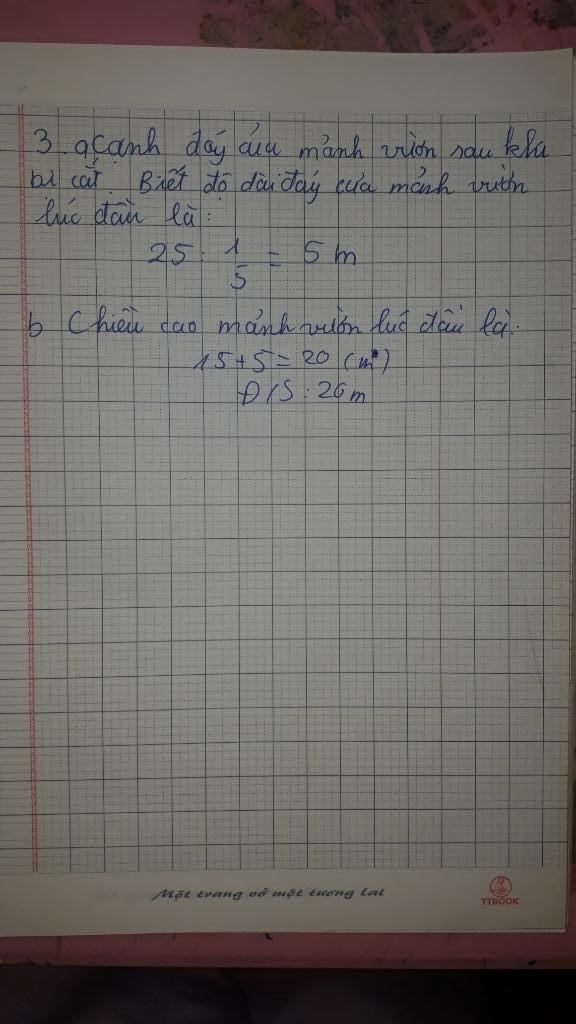 3. a Cạnh đáy của mảnh vườn sau khi
bi cắt. Biết độ dài đáy của mảnh vườn
lúc đầu là:
25 : 1/5 = 5 m
b Chiều cao mảnh vườn lúc đầu là:
15 + 5 = 20 (m)
Đ/S : 20 m
Một trang vở một tương lai
TTBOOK